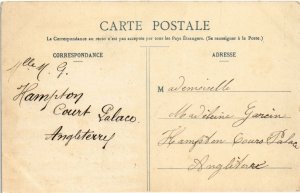 CARTE POSTALE
La Correspondance au recto n'est pas acceptée par tous les Pays Étrangers. (Se renseigner à la Poste.)
CORRESPONDANCE
Mlle M. G.
Hampton
Court Palace
Angleterre
ADRESSE
Mademoiselle
Madeleine Garcin
Hampton Cours Palac
Angleterre